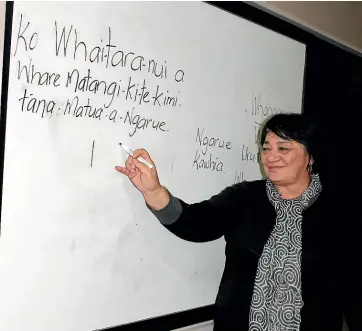 Ko Whaitara-nui a
Whare Matangi-ki-te-kimi.
tana-Matua-a-Ngarue.
Ngarue
Kawhia